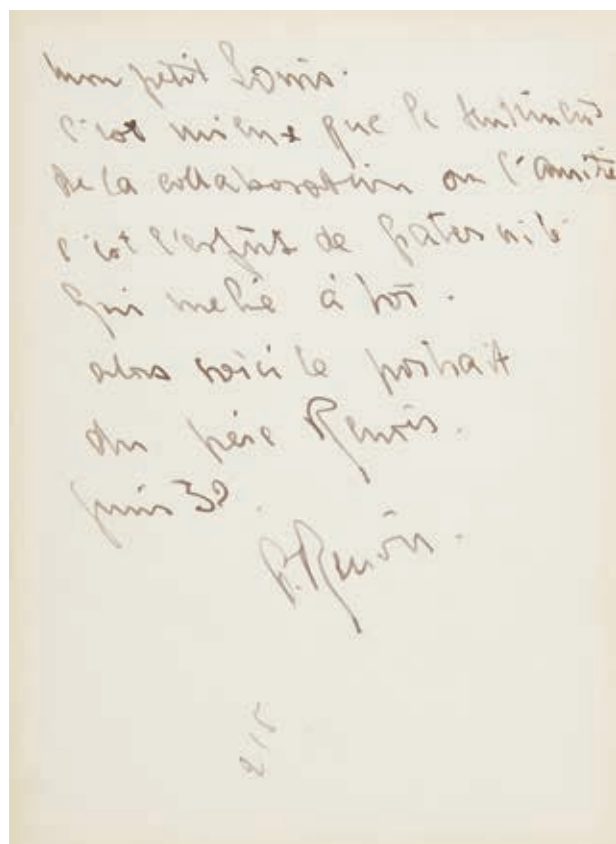 mon petit Louis.
c'est mieux que le sentiment
de la collaboration ou l'amitié
c'est l'esprit de fraternité
qui me lie à toi.
alors voici le portrait
du père Renoir.
juin 39.
P. Renoir.
215